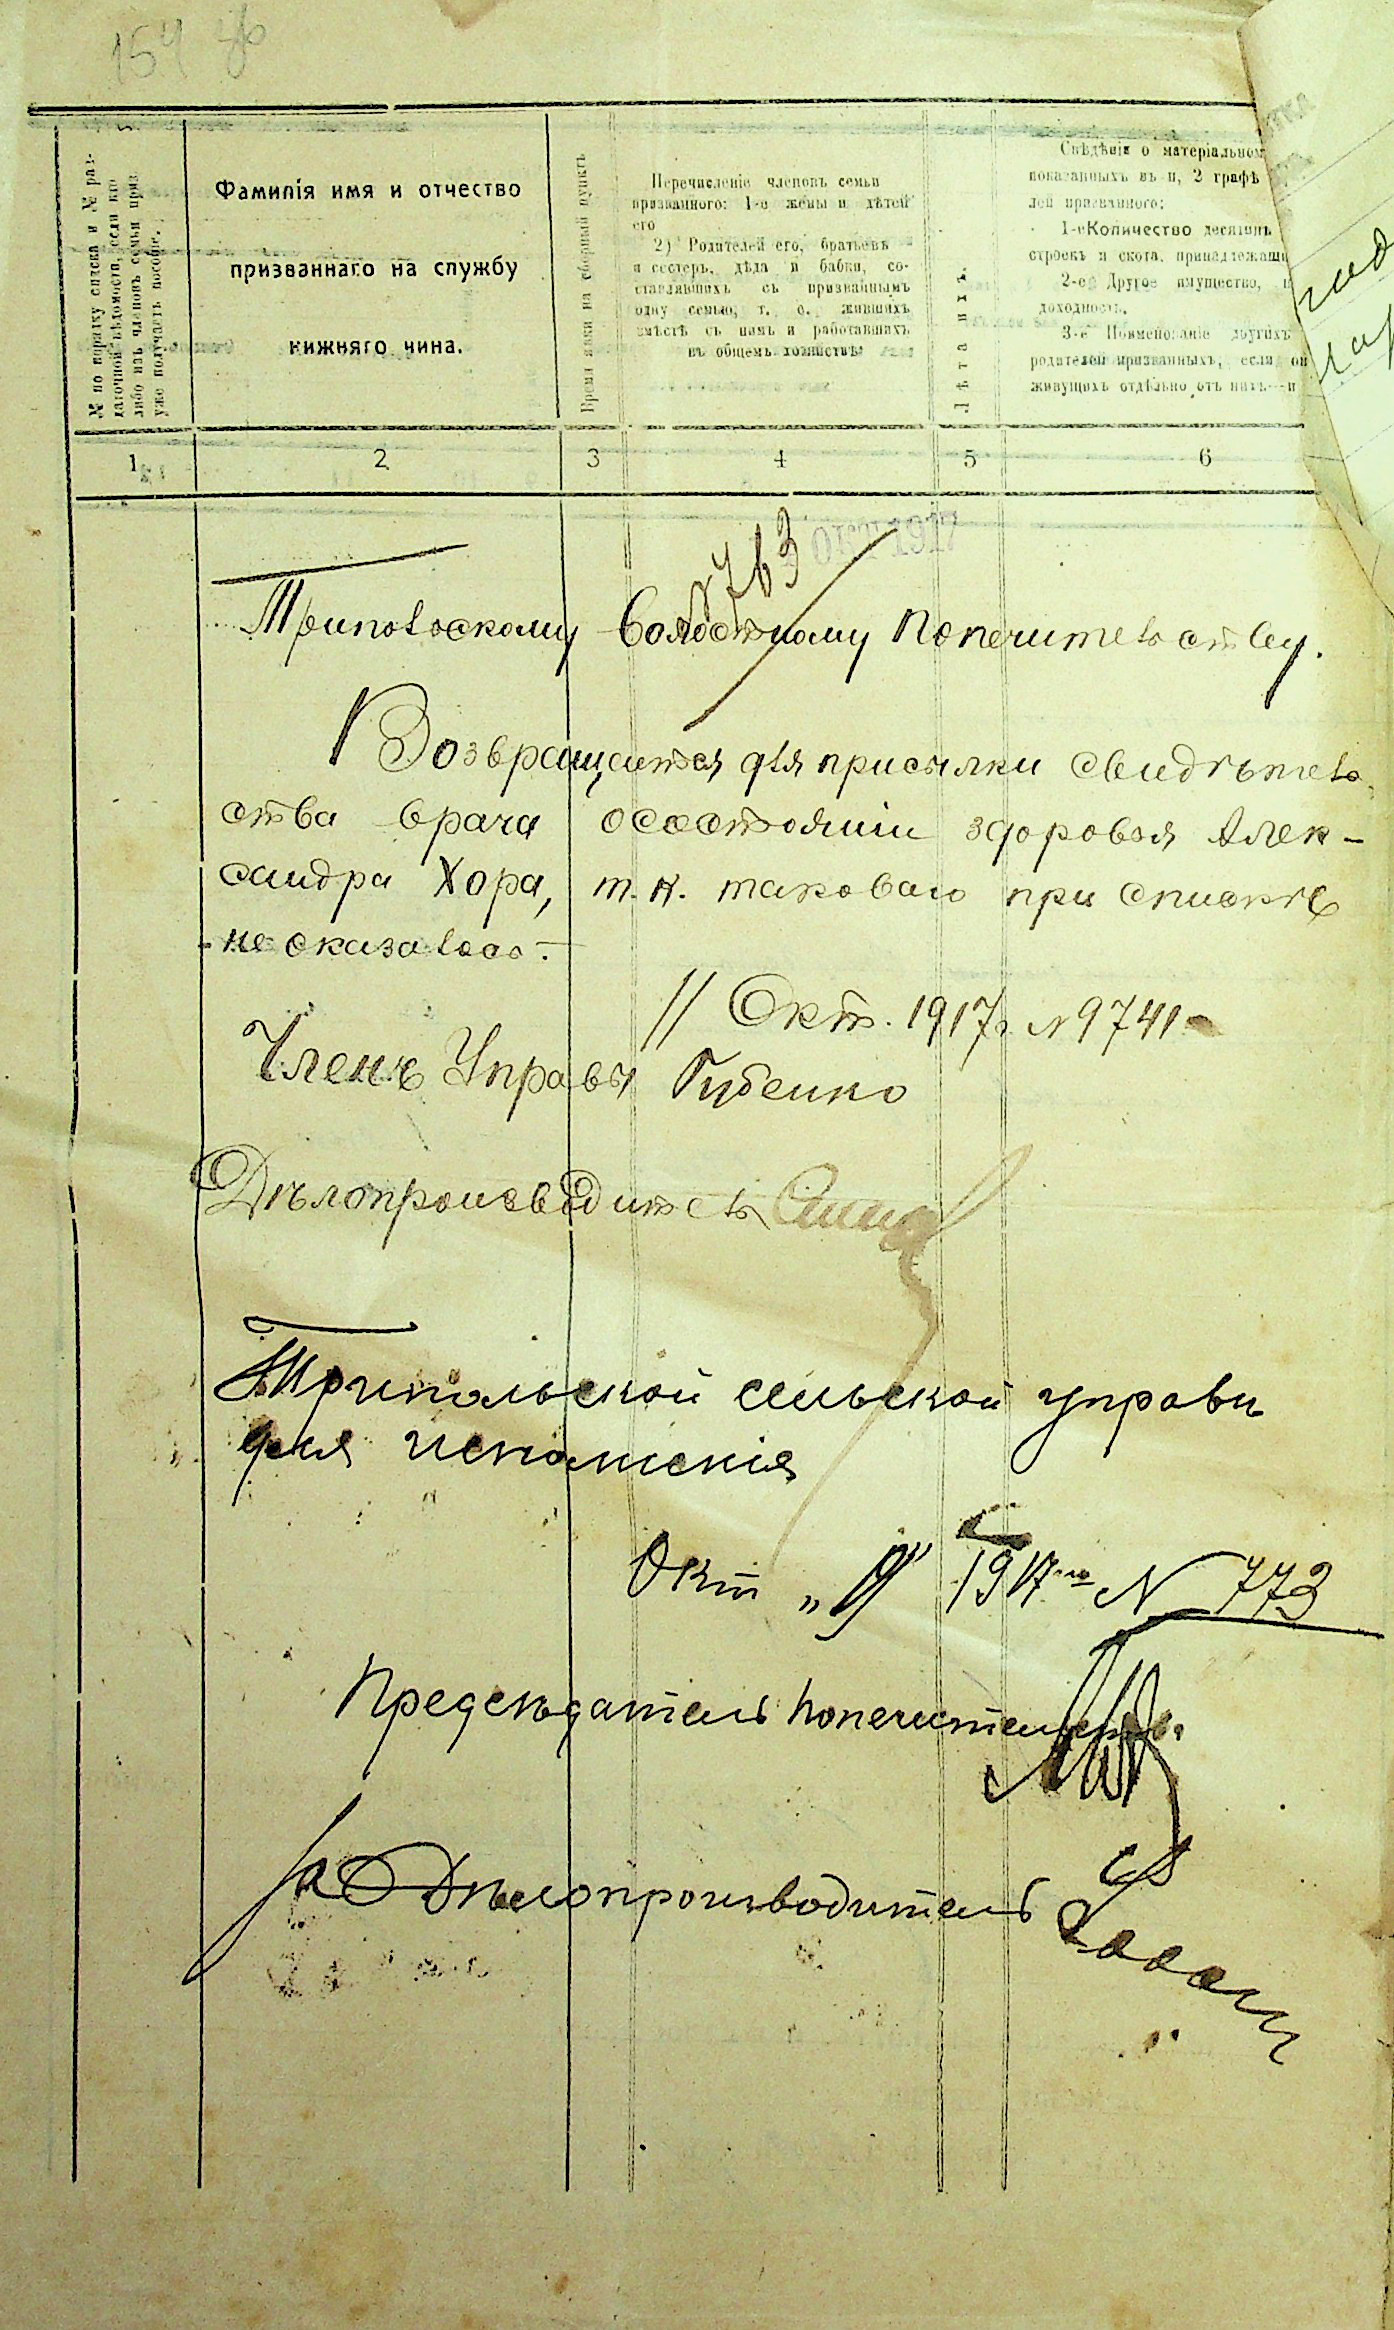 154
№ по порядку списка и № раз-
даточной вѣдомости, если кто
либо изъ членовъ семьи приз.
уже получаетъ пособіе.
Фамилія имя и отчество
призваннаго на службу
нижняго чина.
Время явки на сборный пунктъ
Перечисленіе членовъ семьи
призваннаго: 1-е жены и дѣтей
его
2) Родителей его, братьевъ
и сестеръ, дѣда и бабки, со-
ставлявшихъ съ призваннымъ
одну семью, т. е. жившихъ
вмѣстѣ съ нимъ и работавшихъ
въ общемъ хозяйствѣ
Лѣта ихъ.
Свѣдѣнія о матеріальном
показанныхъ въ п, 2 графѣ
лей призваннаго:
1-е Количество десятинъ
строекъ и скота, принадлежащи
2-е Другое имущество,
доходность.
3-е Поименованіе другихъ
родителей призванныхъ, если он
живущихъ отдѣльно отъ нихъ — и
1 2 3 4 5 6
ОКТ 1917
№ 763
Трипольскому Волостному Попечительству.
Возвращается для присылки свидѣтель
ства врача о состояніи здоровья Алек-
сандра Хора, т. к. таковаго при спискѣ
не оказалось. —
11 Окт. 1917 г. № 9741
Членъ Управы Губенко
Дѣлопроизводитель
Трипольской сельской управы
для исполненія
Окт 1917 го № 773
Предсѣдатель Попечительства
За Дѣлопроизводитель